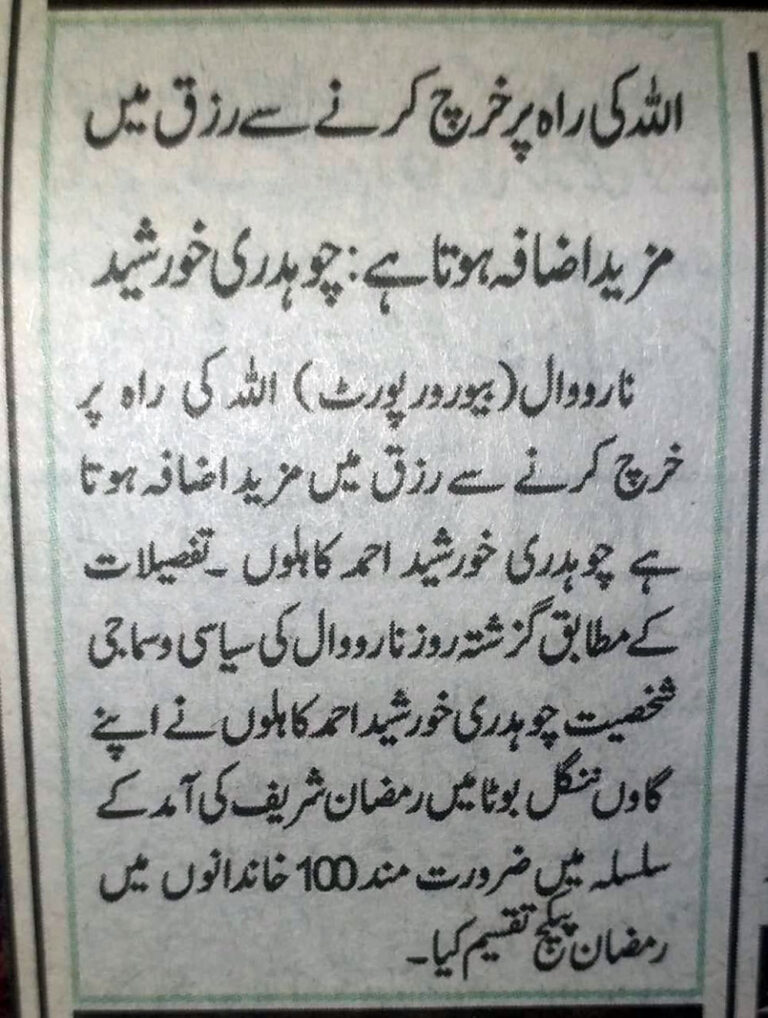 اللہ کی راہ پر خرچ کرنے سے رزق میں
مزید اضافہ ہوتا ہے: چوہدری خورشید
نارووال (بیورورپورٹ) اللہ کی راہ پر
خرچ کرنے سے رزق میں مزید اضافہ ہوتا
ہے چوہدری خورشید احمد کاہلوں ۔ تفصیلات
کے مطابق گزشتہ روز نارووال کی سیاسی و سماجی
شخصیت چوہدری خورشید احمد کاہلوں نے اپنے
گاوں ننگل بوٹا میں رمضان شریف کی آمد کے
سلسلہ میں ضرورت مند 100 خاندانوں میں
رمضان پیکج تقسیم کیا۔